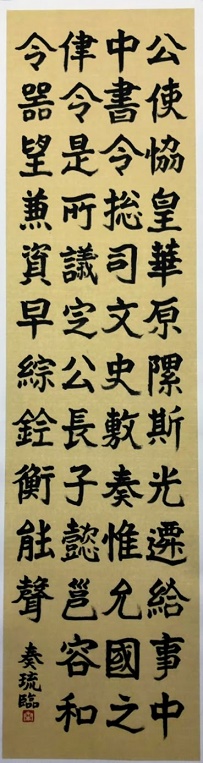 公使恊皇華原隰斯光遷給事中
中書令捴司文史敷奏惟允國之
律令是所議定公長子懿邕容和
令器望兼資早綜銓衡能聲
秦琉臨